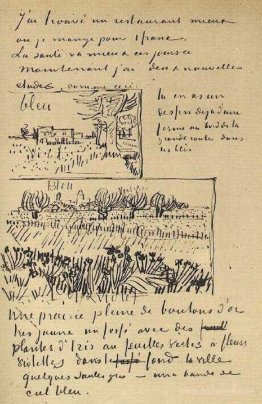 J'ai trouvé un restaurant mieux
ou je mange pour 1 franc.
La santé va mieux ces jours ci
Maintenant j'ai deux nouvelles
etudes comme ceci
bleu
tu en as un
dessin déjà d'une
ferme au bord de la
grande route dans
les blés
Bleu
Une prairie pleine de boutons d'or
tres jaune un fossé avec des
plantes d'Iris aux feuilles vertes à fleurs
violettes dans le fond la ville
quelques saules gris – une bande de
ciel bleu.